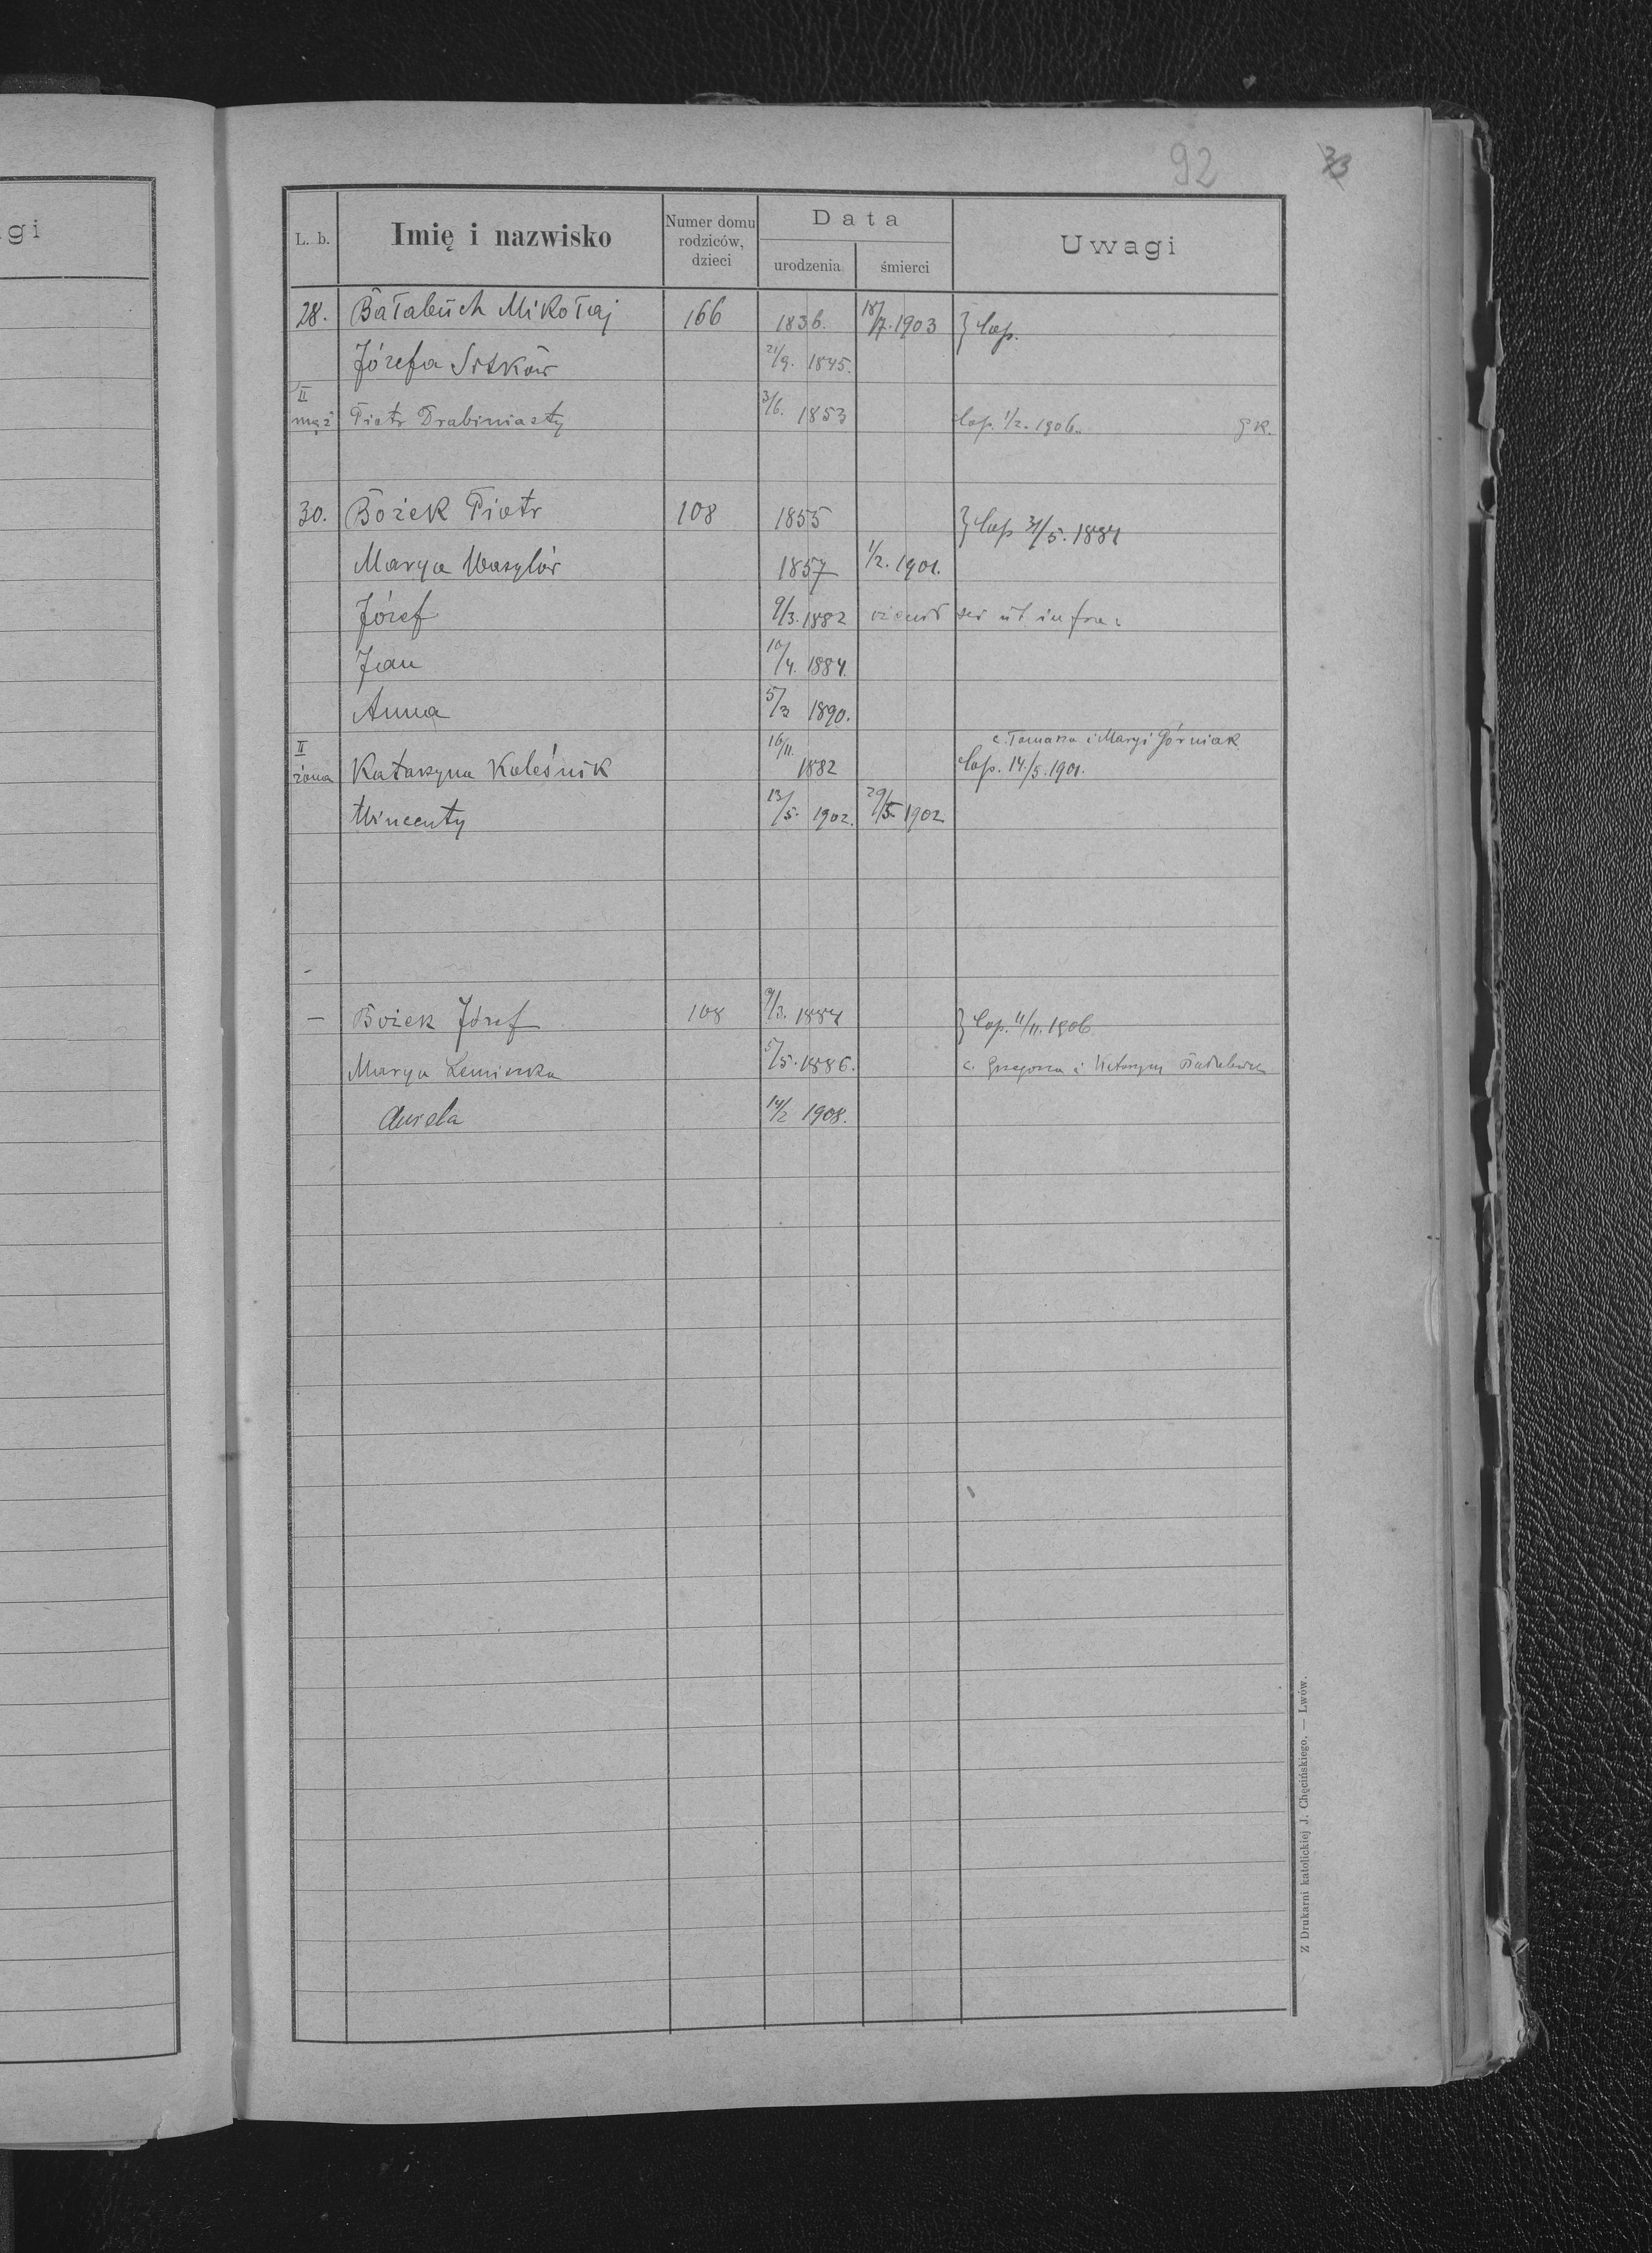 92 33
gi
L. b. Imię i nazwisko Numer domu rodziców, dzieci Data urodzenia śmierci Uwagi
28. Bałabuch Mikołaj 166 1836. 18/7. 1903 } Cop.
Józefa 21/9. 1845.
II mąż Piotr Drabiniasty 3/6. 1853 Cop. 1/2. 1906. gk.
30. Bożek Piotr 108 1855 } Cop 31/5. 1881
Marya Wasylów 1857 1/2. 1901.
Józef 9/3. 1882 ut infra
Jan 10/4. 1884.
Anna 5/3 1890.
c. Tomasza i Maryi Górniak
II żona Katarzyna Koleśnik 16/11. 1882 Cop. 14./5. 1901.
Wincenty 13/5. 1902. 29/5. 1902
-
— Bożek Józef 108 9/3. } Cop. 11/11. 1906
Marya Lemiszka 5/5. 1886. c. Grzegorza i Katarzyny
Aniela 14/2 1908.
Z Drukarni katolickiej J. Chęcińskiego. — Lwów.